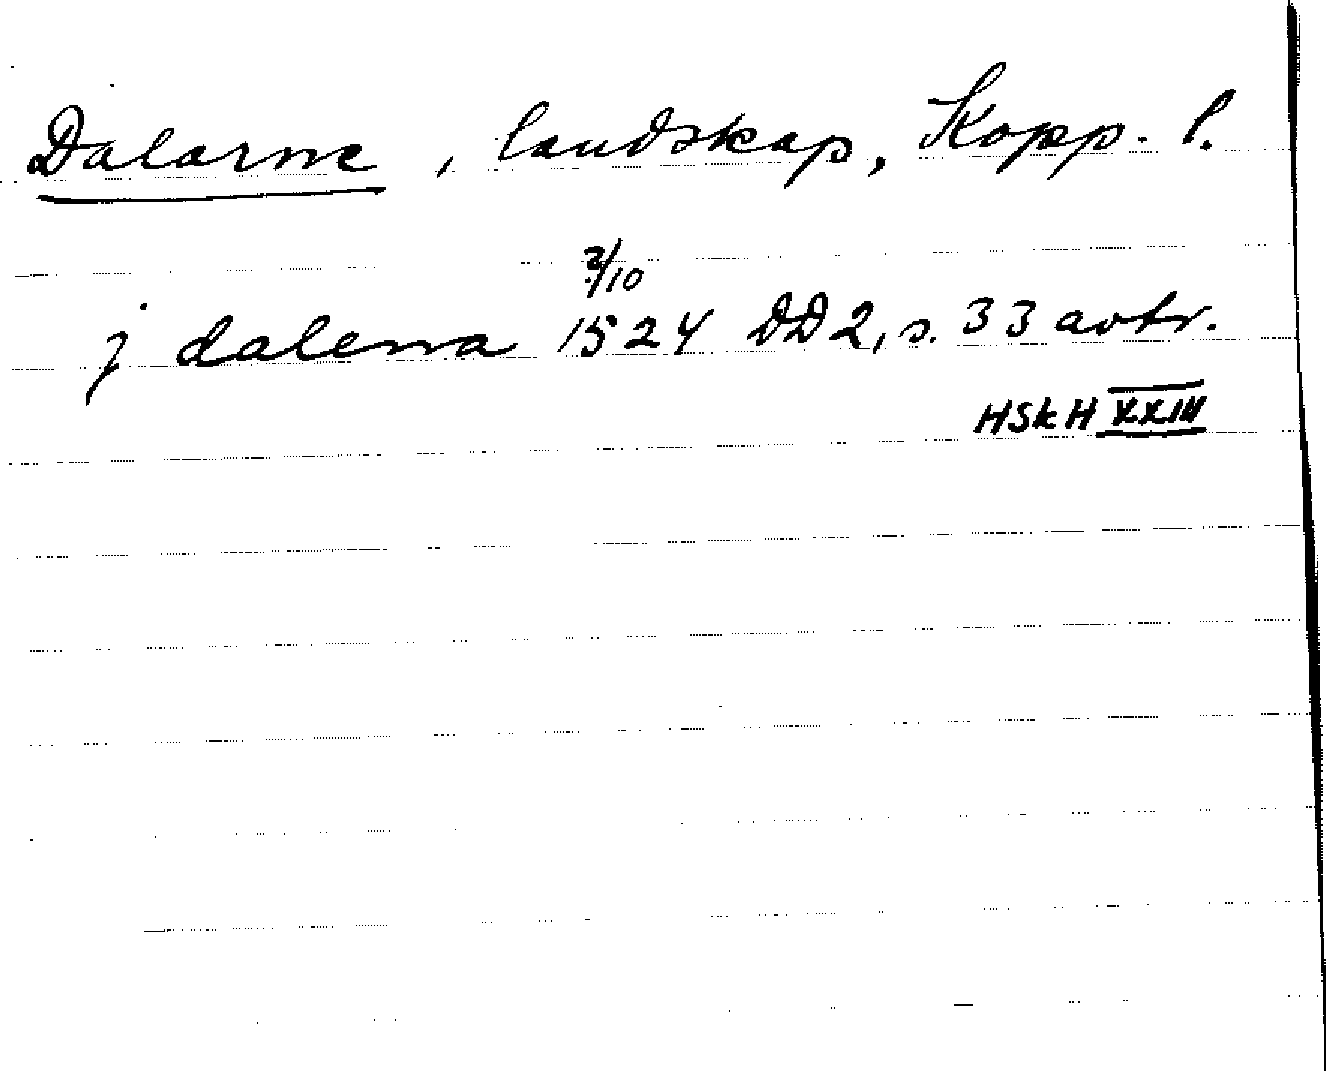 Dalarne, landskap, Kopp. l.
2/10
j dalerna 1524 DD2, s. 33 avtr.
HSkH XXIII